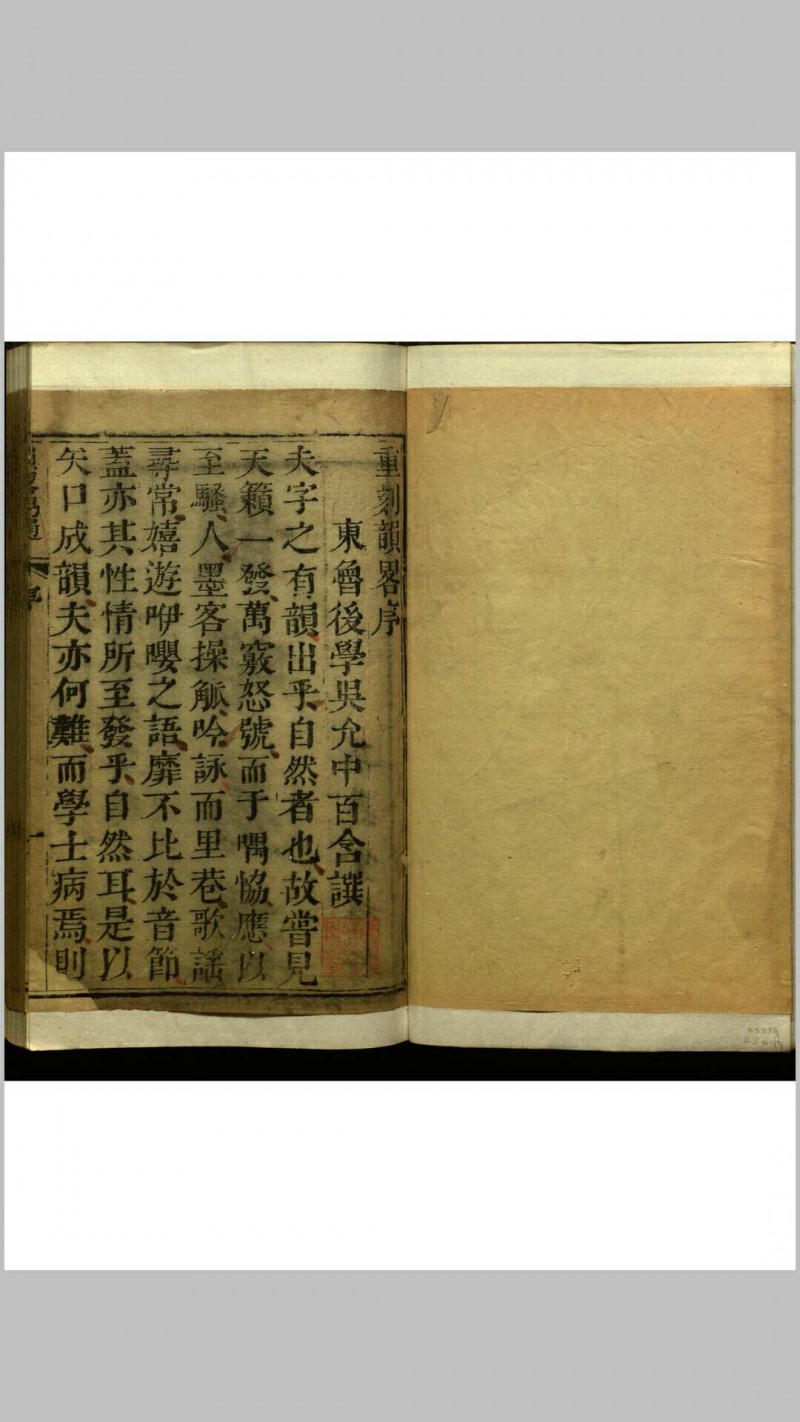 重刻韻畧序
東魯後學吳允中百含譔
夫字之有韻出乎自然者也故嘗見
天籟一發萬竅怒號而于喁恊應以
至騷人墨客操觚吟詠而里巷歌謡
尋常嬉遊咿嚶之語靡不比於音節
蓋亦其性情所至發乎自然耳是以
矢口成韻夫亦何難而學士病焉則
序
一